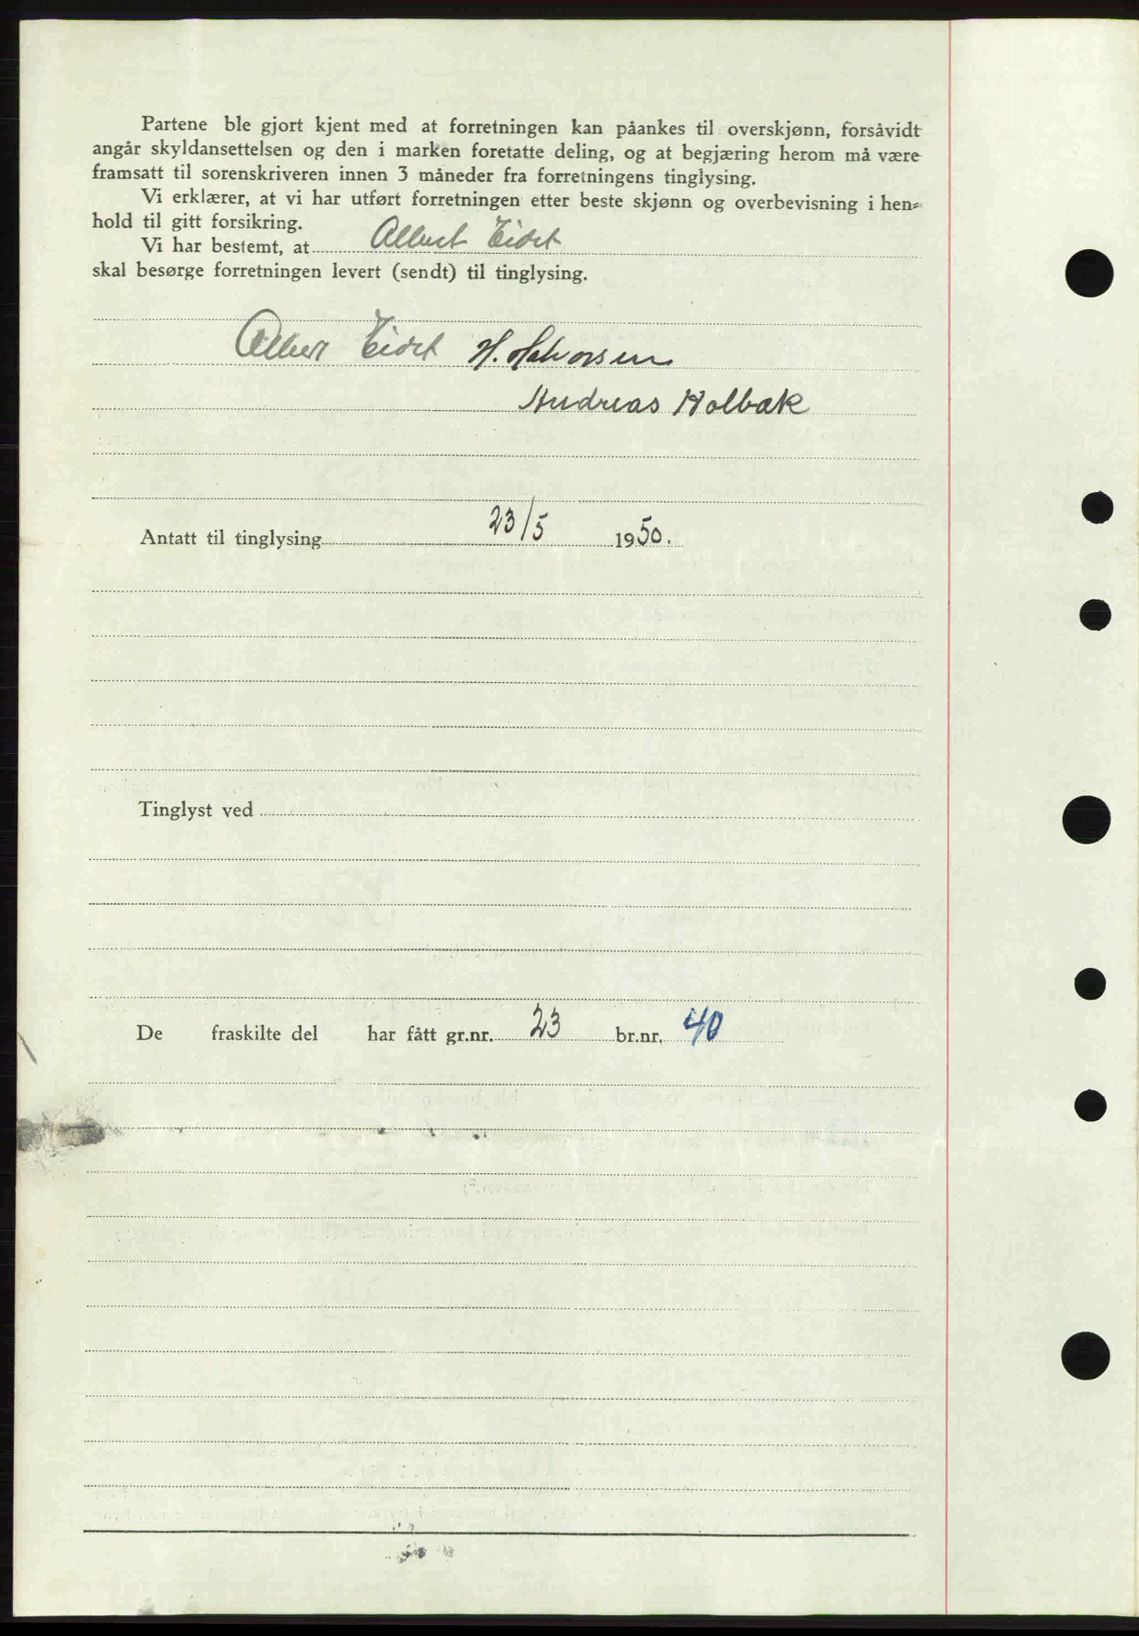 Partene ble gjort kjent med at forretningen kan påankes til overskjønn, forsåvidt
angår skyldansettelsen og den i marken foretatte deling, og at begjæring herom må være
framsatt til sorenskriveren innen 3 måneder fra forretningens tinglysing.
Vi erklærer, at vi har utført forretningen etter beste skjønn og overbevisning i hen-
hold til gitt forsikring.
Vi har bestemt, at Albert Eidet
skal besørge forretningen levert (sendt) til tinglysing.
Albert Eidet H. Halvorsen
Andreas Holbæk
Antatt til tinglysing 23/5 1950.
Tinglyst ved
De fraskilte del har fått gr.nr. 23 br.nr. 40